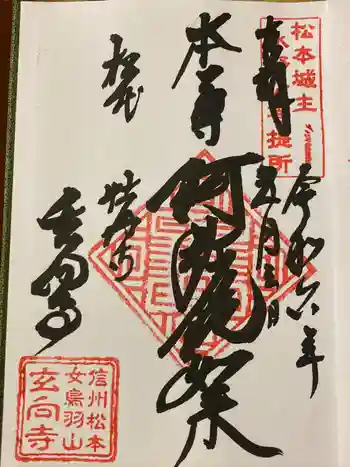 松本城主
提所
奉拝
令和六年
五月三日
本尊
阿弥陀如来
松本
玄向寺
信州松本
女鳥羽山
玄向寺